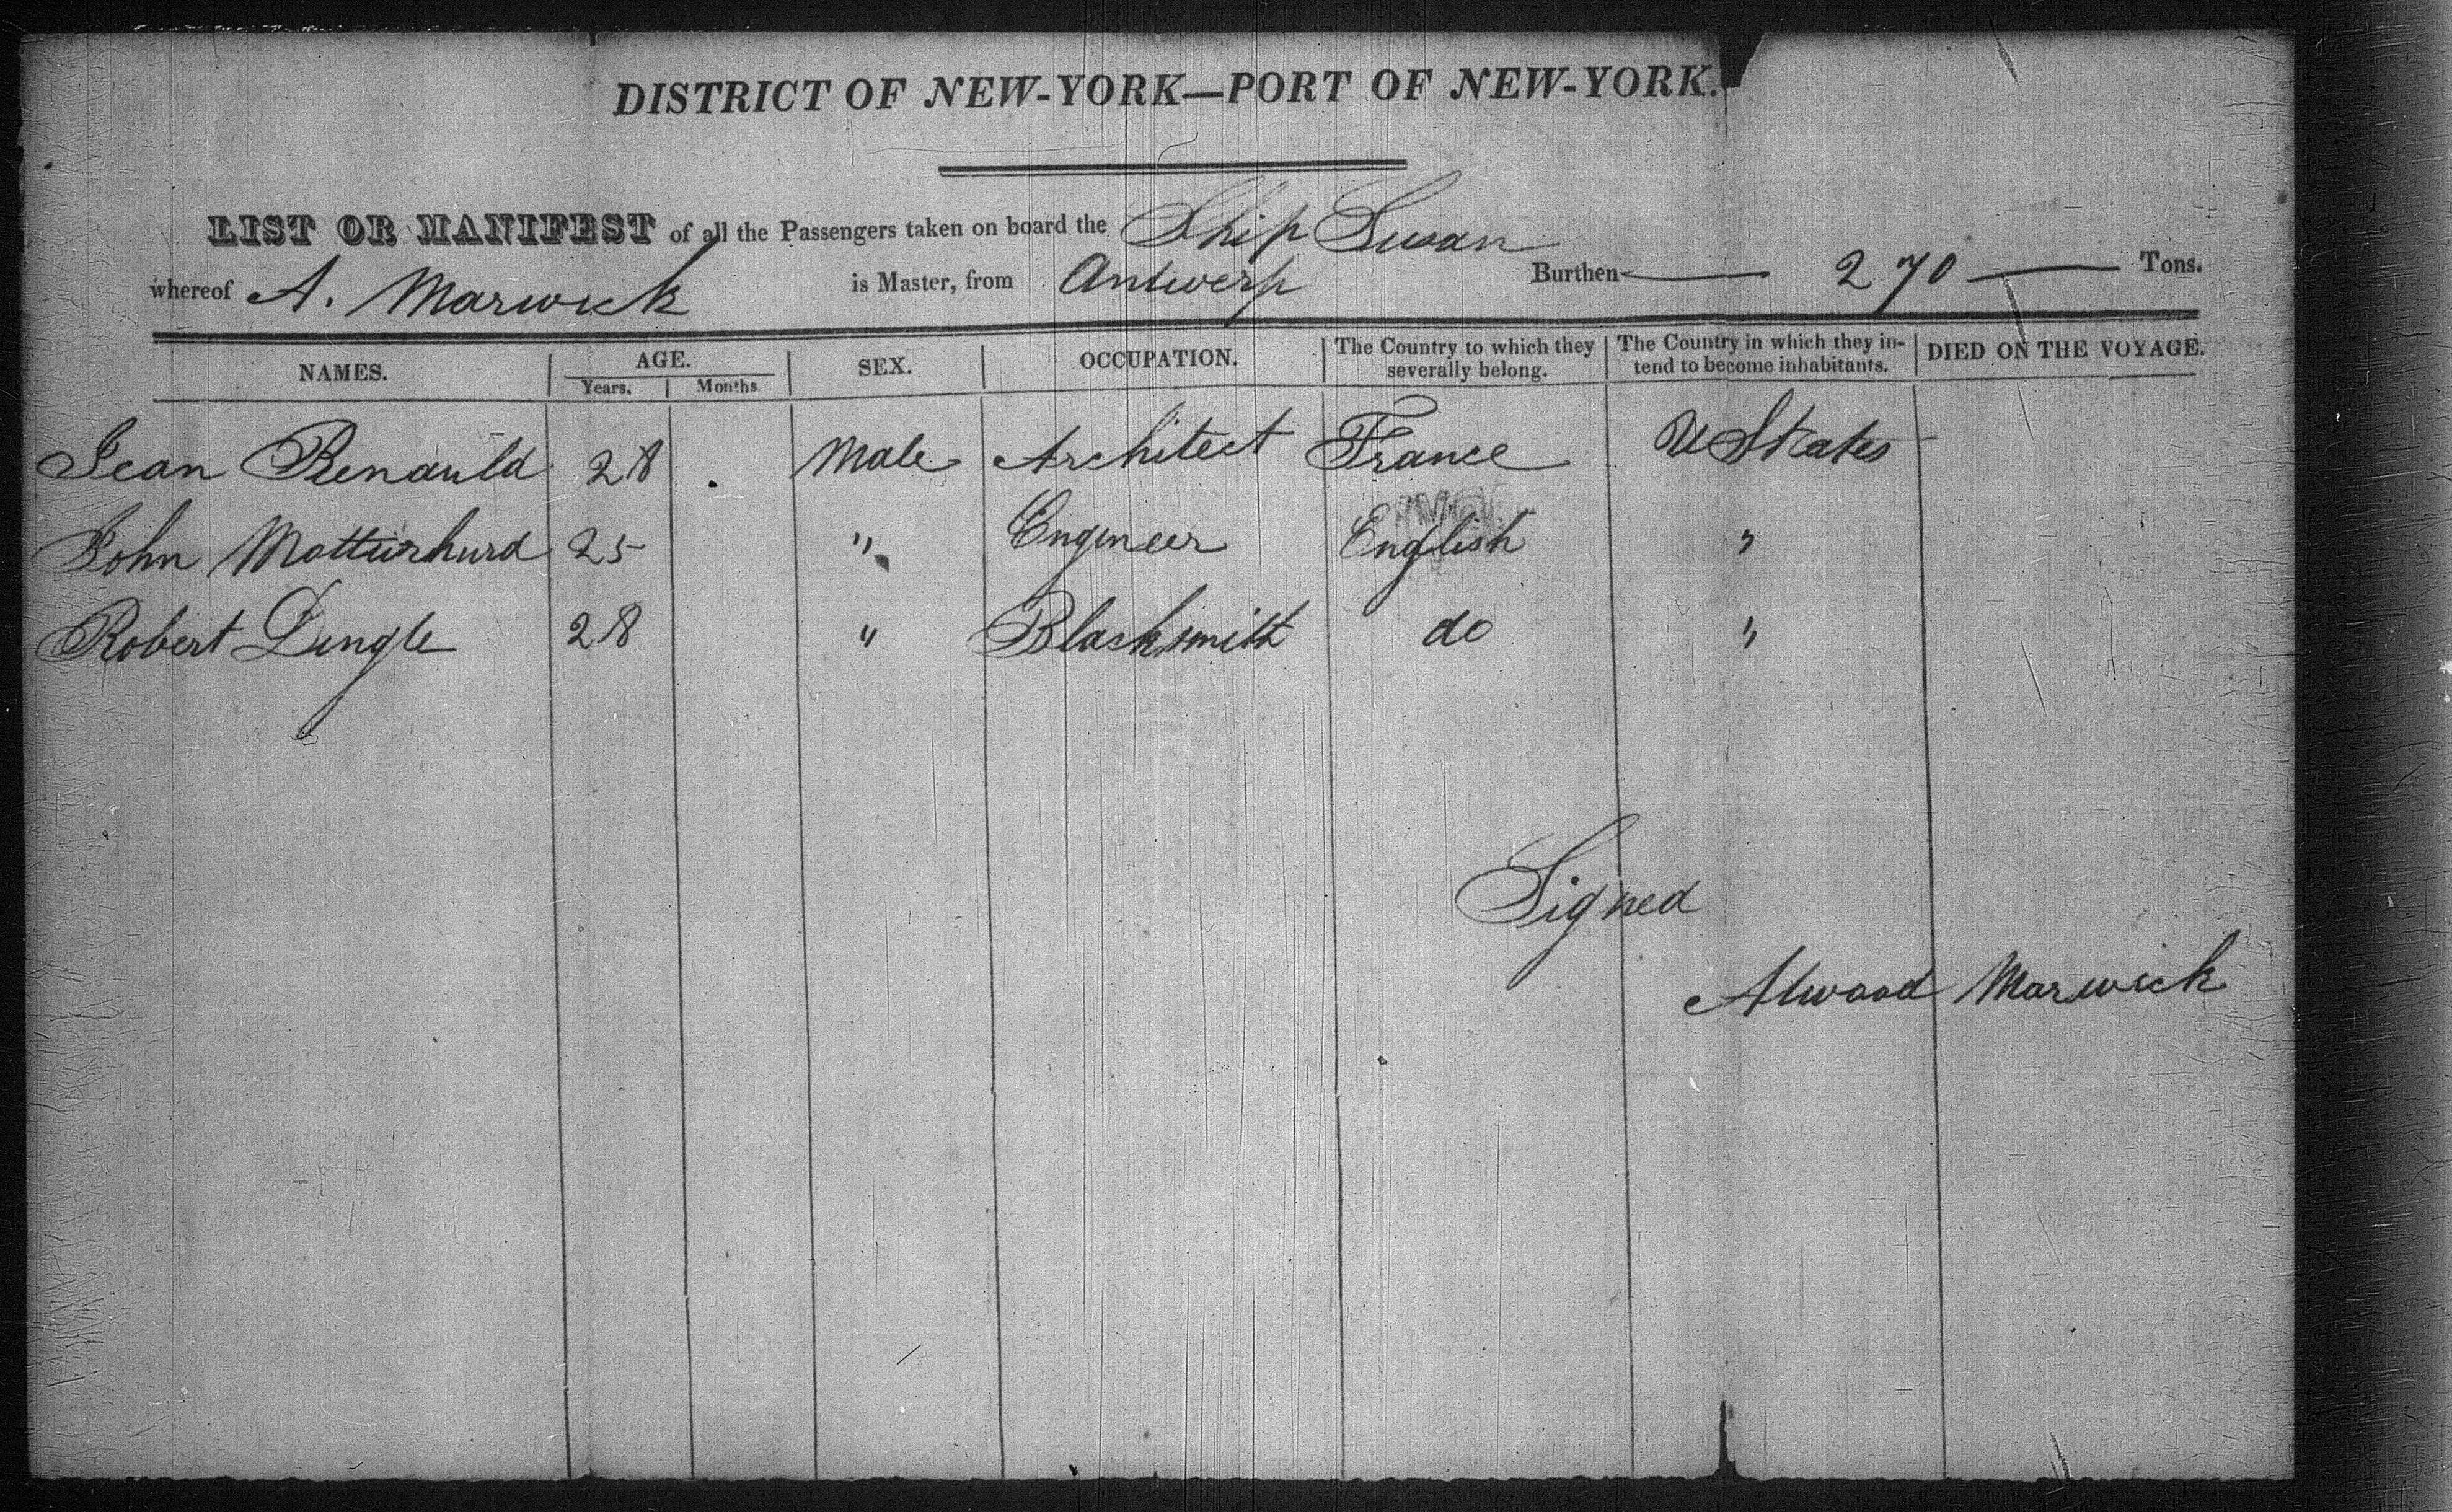 DISTRICT OF NEW-YORK—PORT OF NEW-YORK.
LIST OR MANIFEST of all the Passengers taken on board the Ship Susan
whereof A. Marwick is Master, from Antwerp Burthen — 270 — Tons.
NAMES. AGE. Years. Months. SEX. OCCUPATION. The Country to which they severally belong. The Country in which they intend to become inhabitants. DIED ON THE VOYAGE.
Jean Renauld 28 Male Architect France U States
John 25 " Engineer English "
Robert Dingle 28 " Blacksmith do "
Signed
Marwick